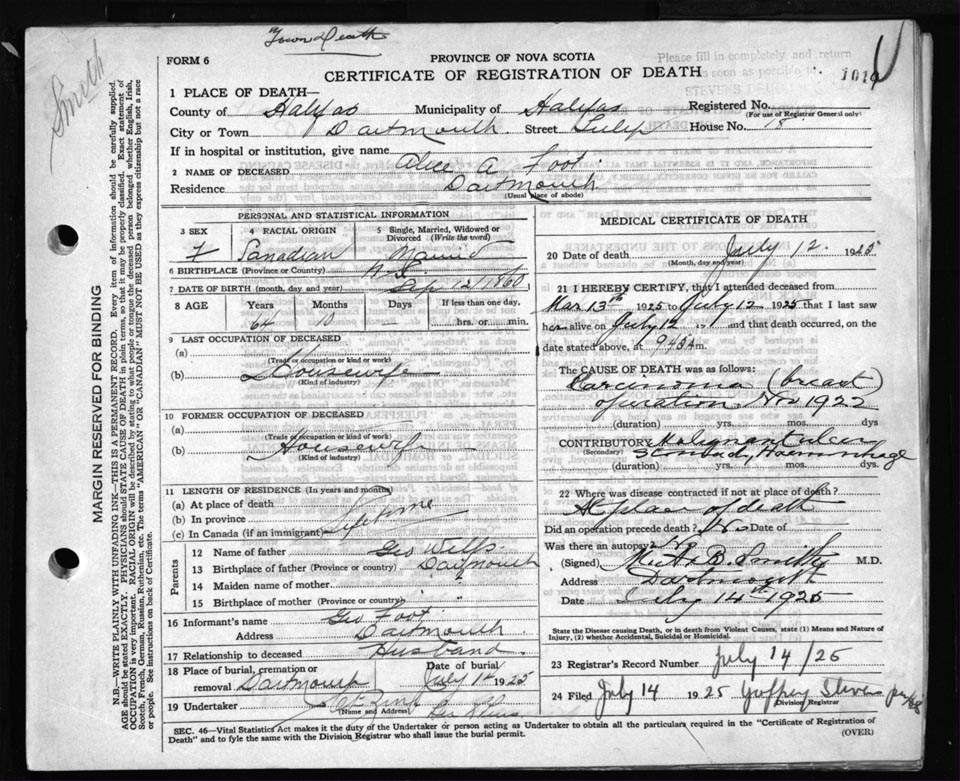 Town Death
Smith
FORM 6
PROVINCE OF NOVA SCOTIA
CERTIFICATE OF REGISTRATION OF DEATH
Please fill in completely and return
as soon as possible to
1019
1 PLACE OF DEATH—
County of Halifax Municipality of Halifax Registered No.
(For use of Registrar General only)
City or Town Dartmouth. Street Tulip House No. 18
If in hospital or institution, give name
2 NAME OF DECEASED Alice A Foot.
Residence Dartmouth
(Usual place of abode)
PERSONAL AND STATISTICAL INFORMATION
3 SEX 4 RACIAL ORIGIN 5 Single, Married, Widowed or Divorced (Write the word)
F Canadian Married
6 BIRTHPLACE (Province or Country) N.S.
7 DATE OF BIRTH (month, day and year) Sep 12/1860
8 AGE Years Months Days If less than one day,
64 10 — hrs. or min.
9 LAST OCCUPATION OF DECEASED
(a)
(Trade or occupation or kind of work)
(b) Housewife
(Kind of industry)
10 FORMER OCCUPATION OF DECEASED
(a)
(Trade or occupation or kind of work)
(b) Housewife
(Kind of industry)
11 LENGTH OF RESIDENCE (In years and months)
(a) At place of death
(b) In province
(c) In Canada (if an immigrant) Lifetime
Parents
12 Name of father Geo Wells.
13 Birthplace of father (Province or country) Dartmouth
14 Maiden name of mother
15 Birthplace of mother (Province or country)
16 Informant's name Geo Foot.
Address Dartmouth.
17 Relationship to deceased Husband.
18 Place of burial, cremation or removal Dartmouth Date of burial July 14 1925
19 Undertaker
(Name and Address)
MEDICAL CERTIFICATE OF DEATH
20 Date of death July 12. 1925
(Month, day and year)
21 I HEREBY CERTIFY, that I attended deceased from
Mar 13th 1925 to July 12 1925 that I last saw
her alive on July 12 19 and that death occurred, on
date stated above, at m.
The CAUSE OF DEATH was as follows:
Carcinoma (breast)
operation Nov 1922
(duration) yrs. mos. ds.
CONTRIBUTORY Malignant ulcer
(Secondary) Stomach, Haemorrhage
(duration) yrs. mos. dys.
22 Where was disease contracted if not at place of death?
At place of death
Did an operation precede death? Date of
Was there an autopsy? No
(Signed) B. Smith M.D.
Address Dartmouth
Date July 14th 1925
State the Disease causing Death, or in death from Violent Causes, state (1) Means and Nature of Injury, (2) whether Accidental, Suicidal or Homicidal.
23 Registrar's Record Number July 14/25
24 Filed July 14 1925 Stevens
Division Registrar
SEC. 46—Vital Statistics Act makes it the duty of the Undertaker or person acting as Undertaker to obtain all the particulars required in the "Certificate of Registration of
Death" and to fyle the same with the Division Registrar who shall issue the burial permit. (OVER)
MARGIN RESERVED FOR BINDING
N.B.—WRITE PLAINLY WITH UNFADING INK—THIS IS A PERMANENT RECORD. Every item of information should be carefully supplied.
AGE should be stated EXACTLY. PHYSICIANS should STATE CAUSE OF DEATH in plain terms, so that it may be properly classified. Exact statement of
OCCUPATION is very important. RACIAL ORIGIN will be described by stating to what people or tongue the deceased person belonged whether English, Irish,
Scotch, French, German, Russian, Ruthenian, etc. The terms "AMERICAN" OR "CANADIAN" MUST NOT BE USED as they express citizenship but not a race
or people. See instructions on back of Certificate.